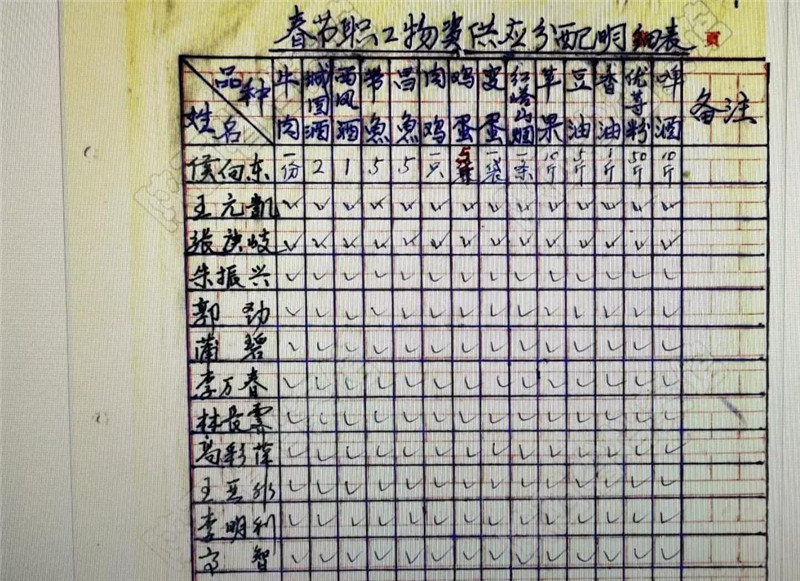 春节职工物资供应分配明细表 页
品种 姓名 牛肉 城固酒 西凤酒 带魚 昌魚 肉鸡 鸡蛋 变蛋 红塔山烟 苹果 豆油 香油 优等粉 啤酒 备注
侯向东 一份 2 1 5 5 一只 5斤 一袋 一条 10斤 5斤 1斤 50斤 10斤
王元凯 ✓ ✓ ✓ ✓ ✓ ✓ ✓ ✓ ✓ ✓ ✓ ✓ ✓ ✓
张 岐 ✓ ✓ ✓ ✓ ✓ ✓ ✓ ✓ ✓ ✓ ✓ ✓ ✓ ✓
朱振兴 ✓ ✓ ✓ ✓ ✓ ✓ ✓ ✓ ✓ ✓ ✓ ✓ ✓ ✓
郭劲 ✓ ✓ ✓ ✓ ✓ ✓ ✓ ✓ ✓ ✓ ✓ ✓ ✓ ✓
蒲碧 ✓ ✓ ✓ ✓ ✓ ✓ ✓ ✓ ✓ ✓ ✓ ✓ ✓ ✓
李万春 ✓ ✓ ✓ ✓ ✓ ✓ ✓ ✓ ✓ ✓ ✓ ✓ ✓ ✓
林长霖 ✓ ✓ ✓ ✓ ✓ ✓ ✓ ✓ ✓ ✓ ✓ ✓ ✓ ✓
高彩萍 ✓ ✓ ✓ ✓ ✓ ✓ ✓ ✓ ✓ ✓ ✓ ✓ ✓ ✓
王亚 ✓ ✓ ✓ ✓ ✓ ✓ ✓ ✓ ✓ ✓ ✓ ✓ ✓ ✓
李明利 ✓ ✓ ✓ ✓ ✓ ✓ ✓ ✓ ✓ ✓ ✓ ✓ ✓ ✓
高智 ✓ ✓ ✓ ✓ ✓ ✓ ✓ ✓ ✓ ✓ ✓ ✓ ✓ ✓